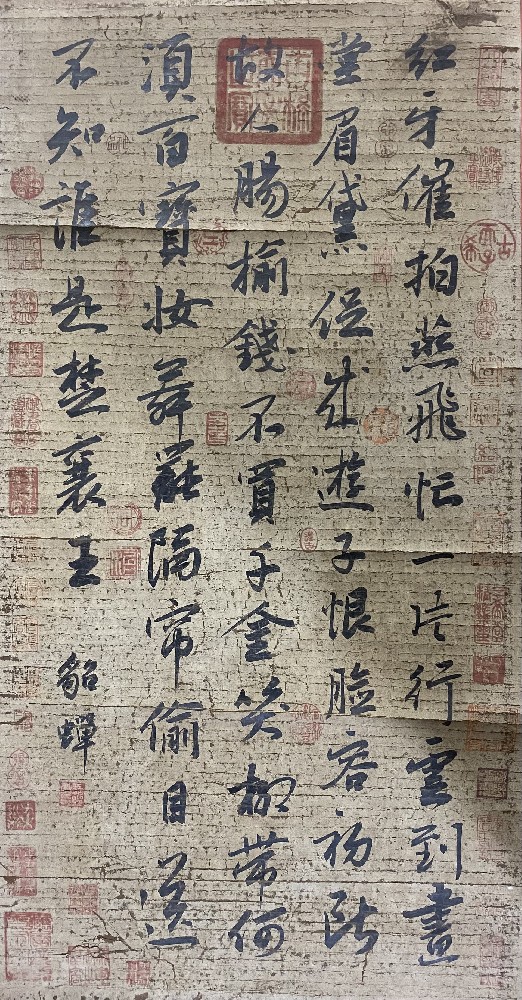 紅牙催拍燕飛忙一片行雲到畫
堂眉黛促成遊子恨臉容初断
故人腸榆錢不買千金笑柳帶何
須百寶妝舞罷隔帘偷目送
不知誰是楚襄王
貂蟬
古希天子